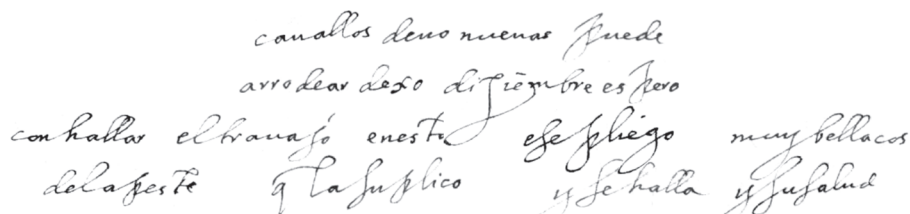 cauallos deno nueuas puede
arrodear dexo diziēmbre espero
con hallar el trauajo enesto ese pliego muy bellacos
dela peste q la suplico y se halla y su salud